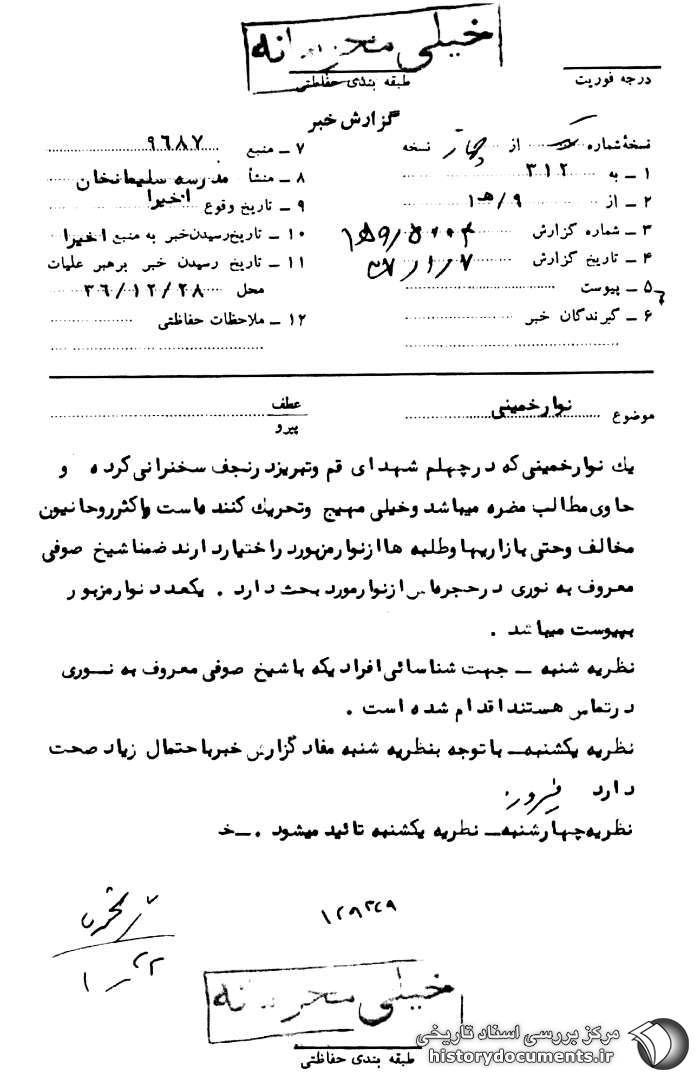 خیلی محرمانه
طبقه بندی حفاظتی
درجه فوریت
گزارش خبر
نسخهٔ شماره یک از چهار نسخه
۱ ـ به ۳۱۲
۲ ـ از ۹/هـ۱
۳ ـ شماره گزارش
۴ ـ تاریخ گزارش ۳۷/۱/۷
۵ ـ پیوست
۶ ـ گیرندگان خبر
۷ ـ منبع ۹۶۸۷
۸ ـ منشأ مدرسه سلیمانخان
۹ ـ تاریخ وقوع اخیرا
۱۰ ـ تاریخ رسیدن خبر به منبع اخیرا
۱۱ ـ تاریخ رسیدن خبر برهبر عملیات
محل ۳۶/۱۲/۲۸
۱۲ ـ ملاحظات حفاظتی
موضوع نوار خمینی
عطف
پیرو
یك نوار خمینی که در چهلم شهدای قم و تبریز در نجف سخنرانی کرده و
حاوی مطالب مضره میباشد و خیلی مهیج و تحریك کننده است و اکثر روحانیون
مخالف وحتی بازاریها و طلبه ها از نوار مزبور در اختیار دارند ضمنا شیخ صوفی
معروف به نوری در حجره‌اش از نوار مورد بحث دارد . یکعدد نوار مزبور
بپیوست میباشد .
نظریه شنبه ـ جهت شناسائی افرادیکه با شیخ صوفی معروف به نوری
در تماس هستند اقدام شده است .
نظریه یکشنبه ـ با توجه بنظریه شنبه مفاد گزارش خبر با احتمال زیاد صحت
دارد
نظریه چهارشنبه ـ نظریه یکشنبه تائید میشود . ـ خ
خیلی محرمانه
طبقه بندی حفاظتی
مرکز بررسی اسناد تاریخی
historydocuments.ir